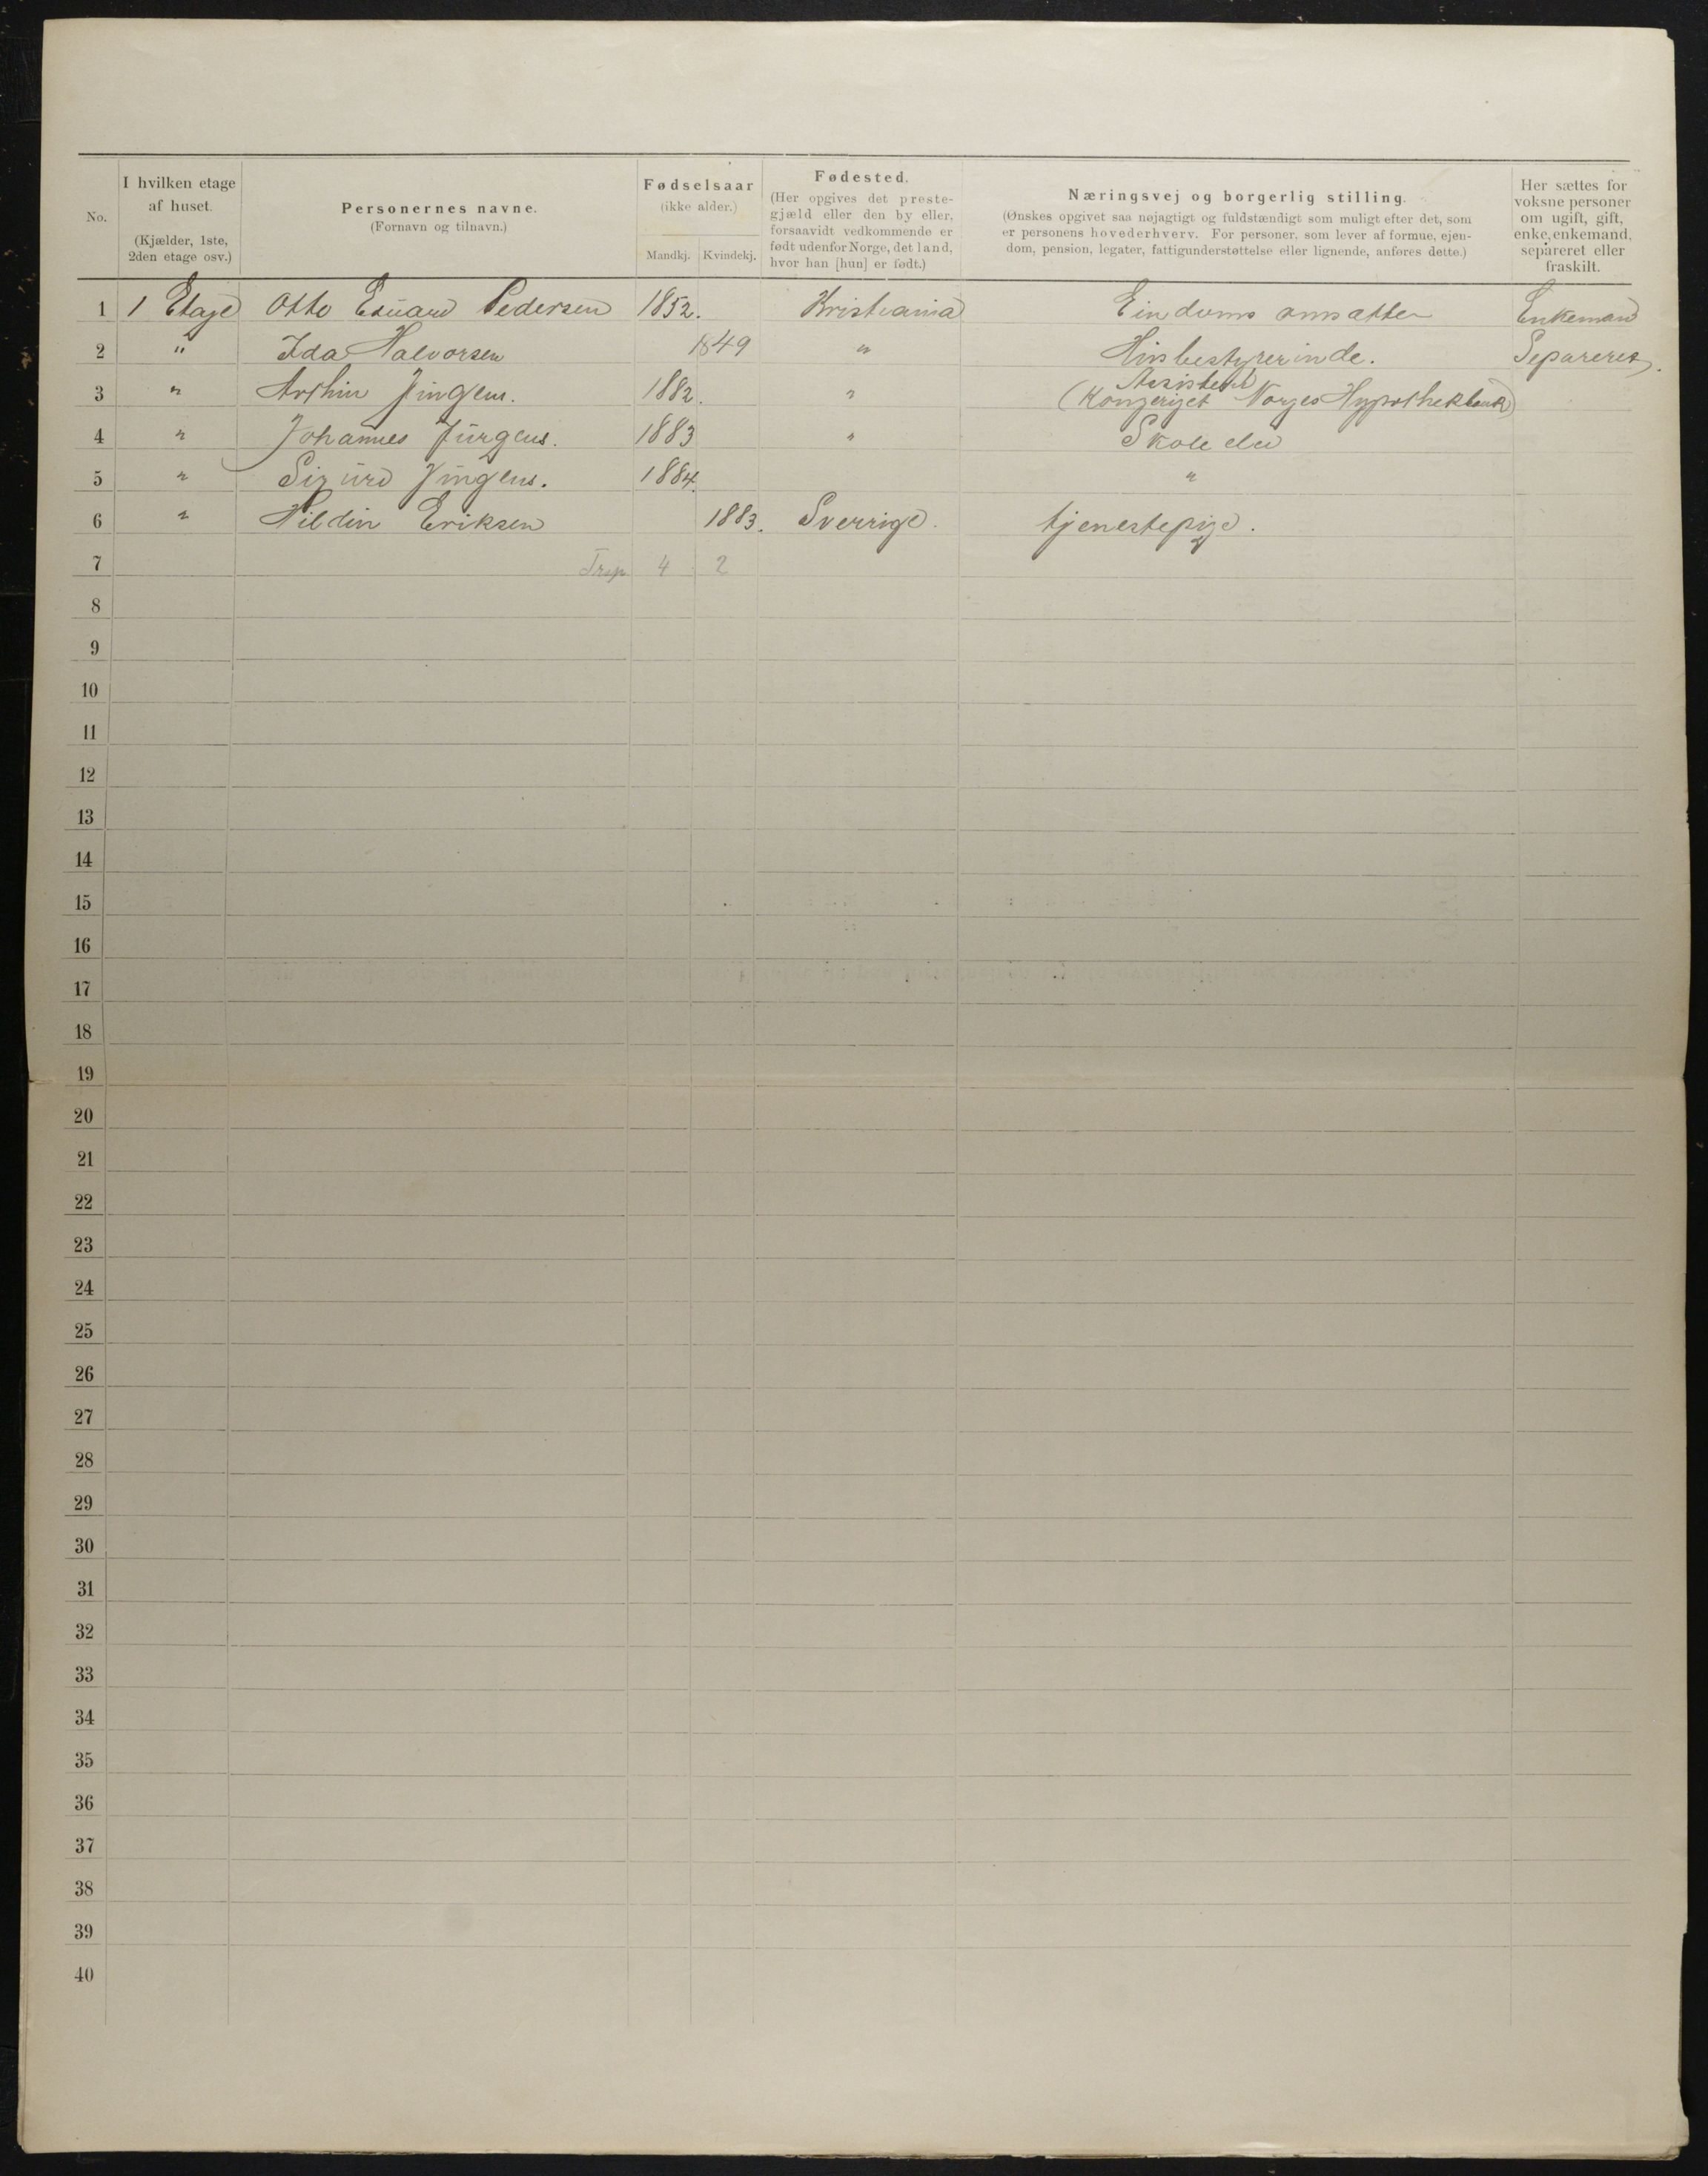 No.
I hvilken etage af huset. (Kjælder, 1ste, 2den etage osv.)
Personernes navne. (Fornavn og tilnavn.)
Fødselsaar (ikke alder.)
Mandkj. Kvindekj.
Fødested. (Her opgives det prestegjæld eller den by eller, forsaavidt vedkommende er født udenfor Norge, det land, hvor han [hun] er født.)
Næringsvej og borgerlig stilling.
(Ønskes opgivet saa nøjagtigt og fuldstændigt som muligt efter det, som
er personens hovederhverv. For personer, som lever af formue, ejen-
dom, pension, legater, fattigunderstøttelse eller lignende, anføres dette.)
Her sættes for voksne personer om ugift, gift, enke, enkemand, separeret eller fraskilt.
1 1 Etage Otto Eduard Pedersen 1852. Kristiania Eindoms Enkemand
2 " Ida Halvorsen 1849 " Husbestyrerinde. Separeret.
Assistent
3 " Jürgens. 1882. " (Kongeriget Norges Hypothekbank)
4 " Johannes Jürgens. 1883 " Skole elev
5 " Sigurd Jürgens. 1884. "
6 " Eriksen 1883. Sverrige. tjenestepige.
7 4 2
8
9
10
11
12
13
14
15
16
17
18
19
20
21
22
23
24
25
26
27
28
29
30
31
32
33
34
35
36
37
38
39
40